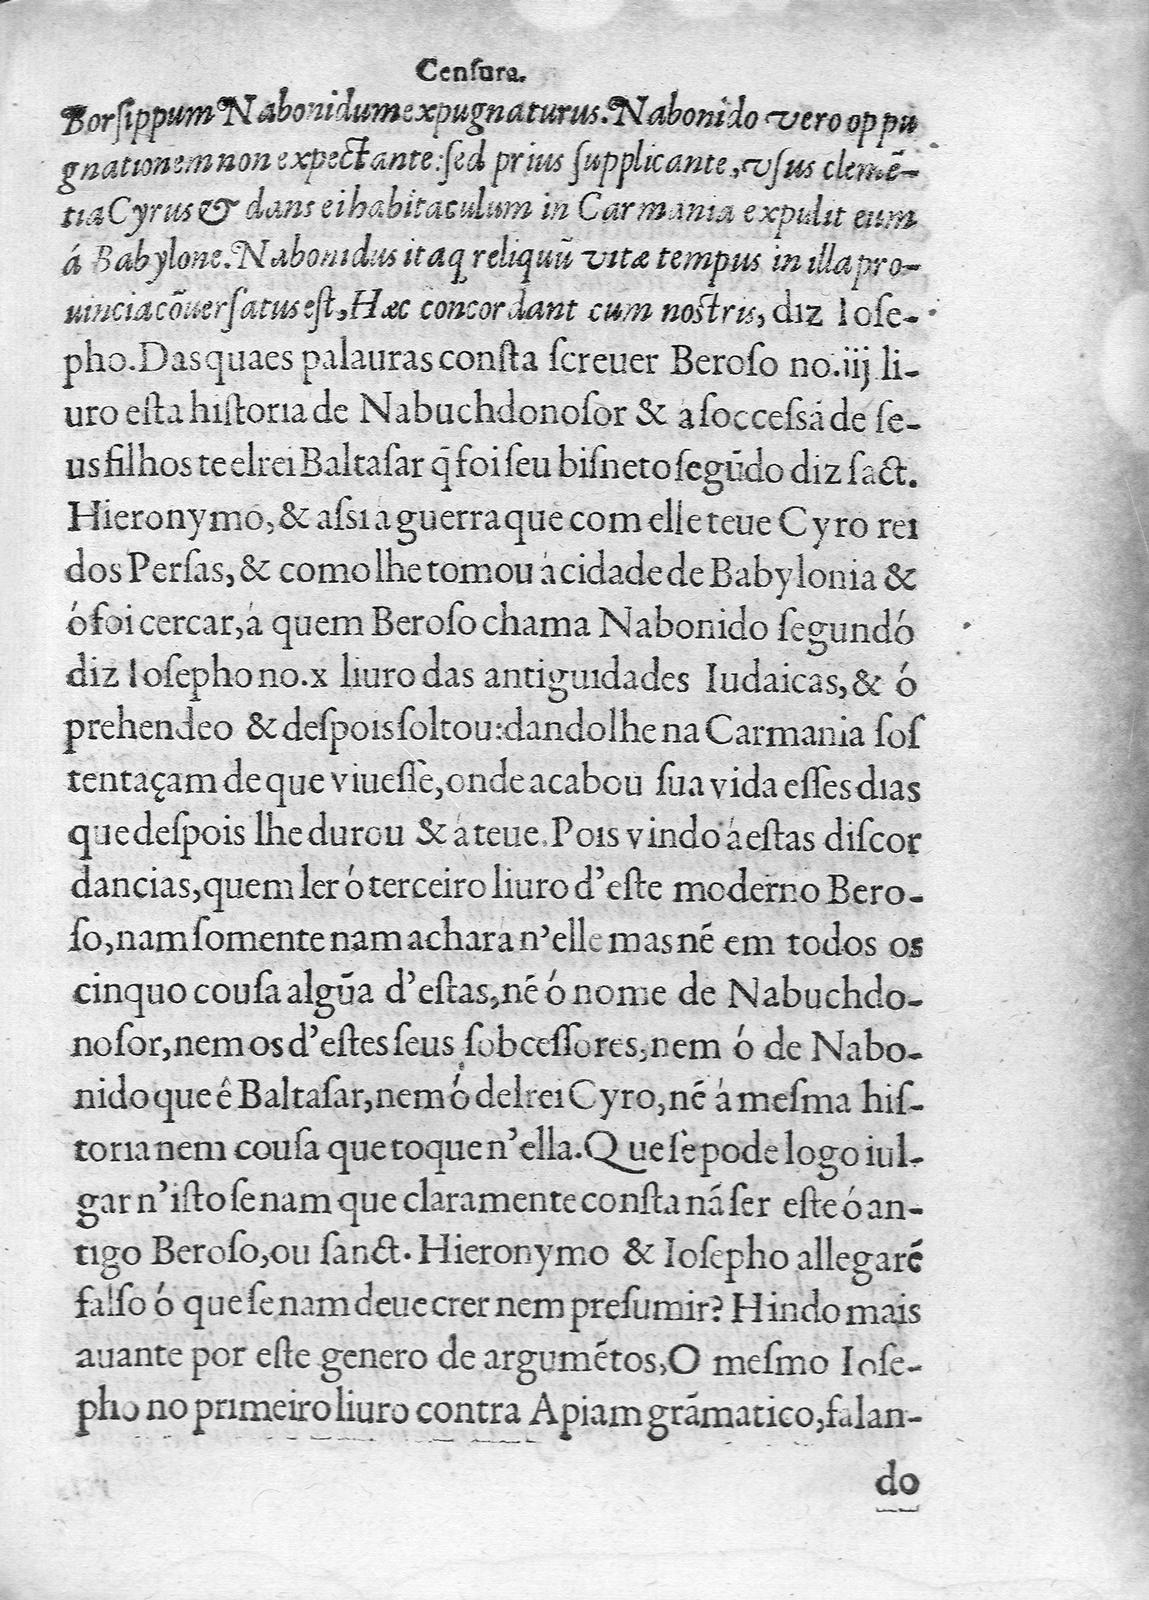 Cenſura.
Borſippum Nabonidum expugnaturus. Nabonido vero oppu
gnationem non expectante: ſed prius ſupplicante, vſus clemē-
tia Cyrus & dans ei habitaculum in Carmania expulit eum
á Babylone. Nabonidus itaq reliquū vitæ tempus in illa pro-
uincia cōuerſatus eſt, Hæc concordant cum noſtris, diz Ioſe-
pho. Das quaes palauras conſta ſcreuer Beroſo no. iij li-
uro eſta hiſtoria de Nabuchdonoſor & a ſocceſsá de ſe-
us filhos te elrei Baltaſar q̄ foi ſeu biſneto ſegūdo diz ſact.
Hieronymo, & aſsi a guerra que com elle teue Cyro rei
dos Perſas, & como lhe tomou á cidade de Babylonia &
ó foi cercar, á quem Beroſo chama Nabonido ſegundó
diz Ioſepho no. x liuro das antiguidades Iudaicas, & ó
prehendeo & deſpois ſoltou: dandolhe na Carmania ſoſ
tentaçam de que viueſſe, onde acabou ſua vida eſſes dias
que deſpois lhe durou & á teue. Pois vindo á eſtas diſcor
dancias, quem ler ó terceiro liuro d'eſte moderno Bero-
ſo, nam ſomente nam achara n'elle mas nē em todos os
cinquo couſa algūa d'eſtas, nē ó nome de Nabuchdo-
noſor, nem os d'eſtes ſeus ſobceſſores, nem ó de Nabo-
nido que ê Baltaſar, nem ó delrei Cyro, nē á meſma hiſ-
toria nem couſa que toque n'ella. Que ſè pode logo iul-
gar n'iſto ſe nam que claramente conſta nā ſer eſte ó an-
tigo Beroſo, ou ſanct. Hieronymo & Ioſepho allegarē
falſo ó que ſe nam deue crer nem preſumir? Hindo mais
auante por eſte genero de argumētos, O meſmo Ioſe-
pho no primeiro liuro contra Apiam grāmatico, falan-
do